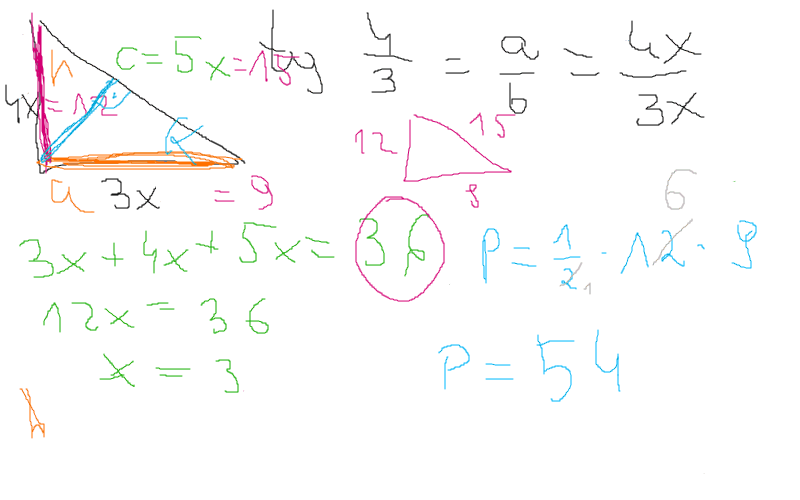 h c = 5x = 15 tg 4/3 = a/b = 4x/3x
4x = 12
12 15 9
a 3x = 9
3x + 4x + 5x = 36
P = 1/2 · 12 · 9
6
1
12x = 36
x = 3
P = 54
h